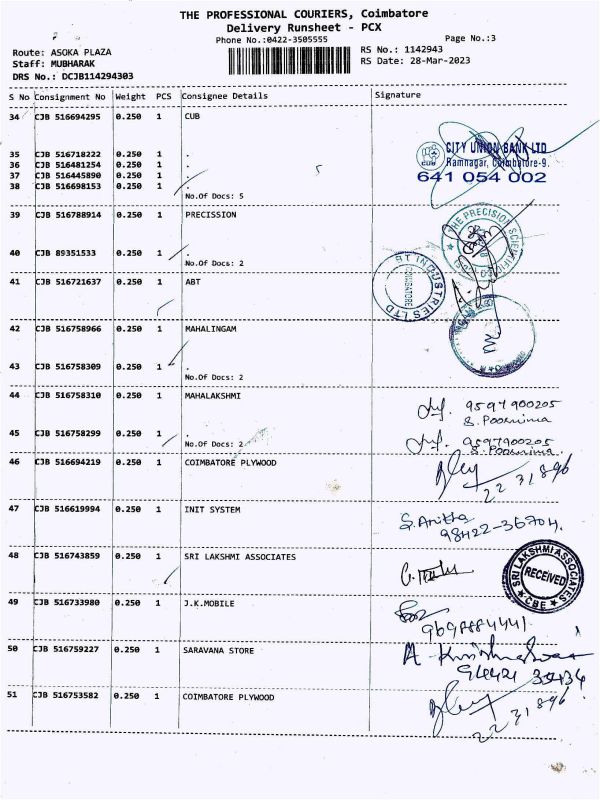 THE PROFESSIONAL COURIERS, Coimbatore
Delivery Runsheet - PCX
Phone No.:0422-3505555 Page No.:3
Route: ASOKA PLAZA RS No.: 1142943
Staff: MUBHARAK RS Date: 28-Mar-2023
DRS No.: DCJB114294303
S No Consignment No Weight PCS Consignee Details Signature
34 CJB 516694295 0.250 1 CUB
CITY UNION BANK LTD
35 CJB 516718222 0.250 1 .
Ramnagar, Coimbatore-9.
36 CJB 516481254 0.250 1 .
37 CJB 516445890 0.250 1 .
641 054 002
38 CJB 516698153 0.250 1 .
No.Of Docs: 5
39 CJB 516788914 0.250 1 PRECISSION
THE PRECISION SCIENTIFIC
40 CJB 89351533 0.250 1 .
No.Of Docs: 2
41 CJB 516721637 0.250 1 ABT
INDUSTRIES LTD
COIMBATORE
42 CJB 516758966 0.250 1 MAHALINGAM
43 CJB 516758309 0.250 1 .
No.Of Docs: 2
44 CJB 516758310 0.250 1 MAHALAKSHMI
9597900205
S. Poornima
45 CJB 516758299 0.250 1 .
9597900205
No.Of Docs: 2
S. Poornima
46 CJB 516694219 0.250 1 COIMBATORE PLYWOOD
2231896
47 CJB 516619994 0.250 1 INIT SYSTEM
S. Anitha
98422-36704.
48 CJB 516743859 0.250 1 SRI LAKSHMI ASSOCIATES
SRI LAKSHMI ASSOCIATES
RECEIVED
CBE
49 CJB 516733980 0.250 1 J.K.MOBILE
9698884441.
50 CJB 516759227 0.250 1 SARAVANA STORE
51 CJB 516753582 0.250 1 COIMBATORE PLYWOOD
2231896